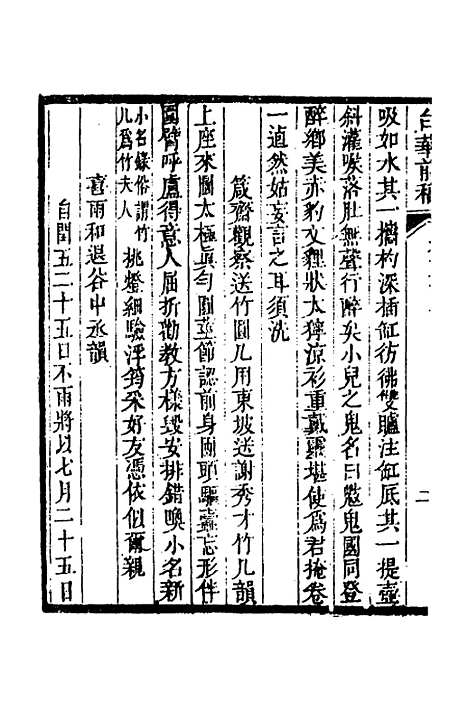 吸如水其一攜杓深插缸彷彿雙驢注缸底其一提壺
斜灌喉落肚無聲行醉矣小兒之鬼名曰魃鬼國同登
醉鄉美赤豹文貍狀太獰涼衫重戴靈堪使爲君掩卷
一逌然姑妄言之耳須洗
箴齋觀察送竹圓几用東坡送謝秀才竹几韻
上座來圓太極眞勻圓莖節認前身團頭 忘形伴
臂呼盧得意人屈折勸教方樣毀安排錯喚小名新
小名錄俗謂竹
几爲竹夫人
挑燈細驗浮筠采好友憑依似爾親
喜雨和退谷中丞韻
自閏五二十五日不雨將以七月二十五日
二